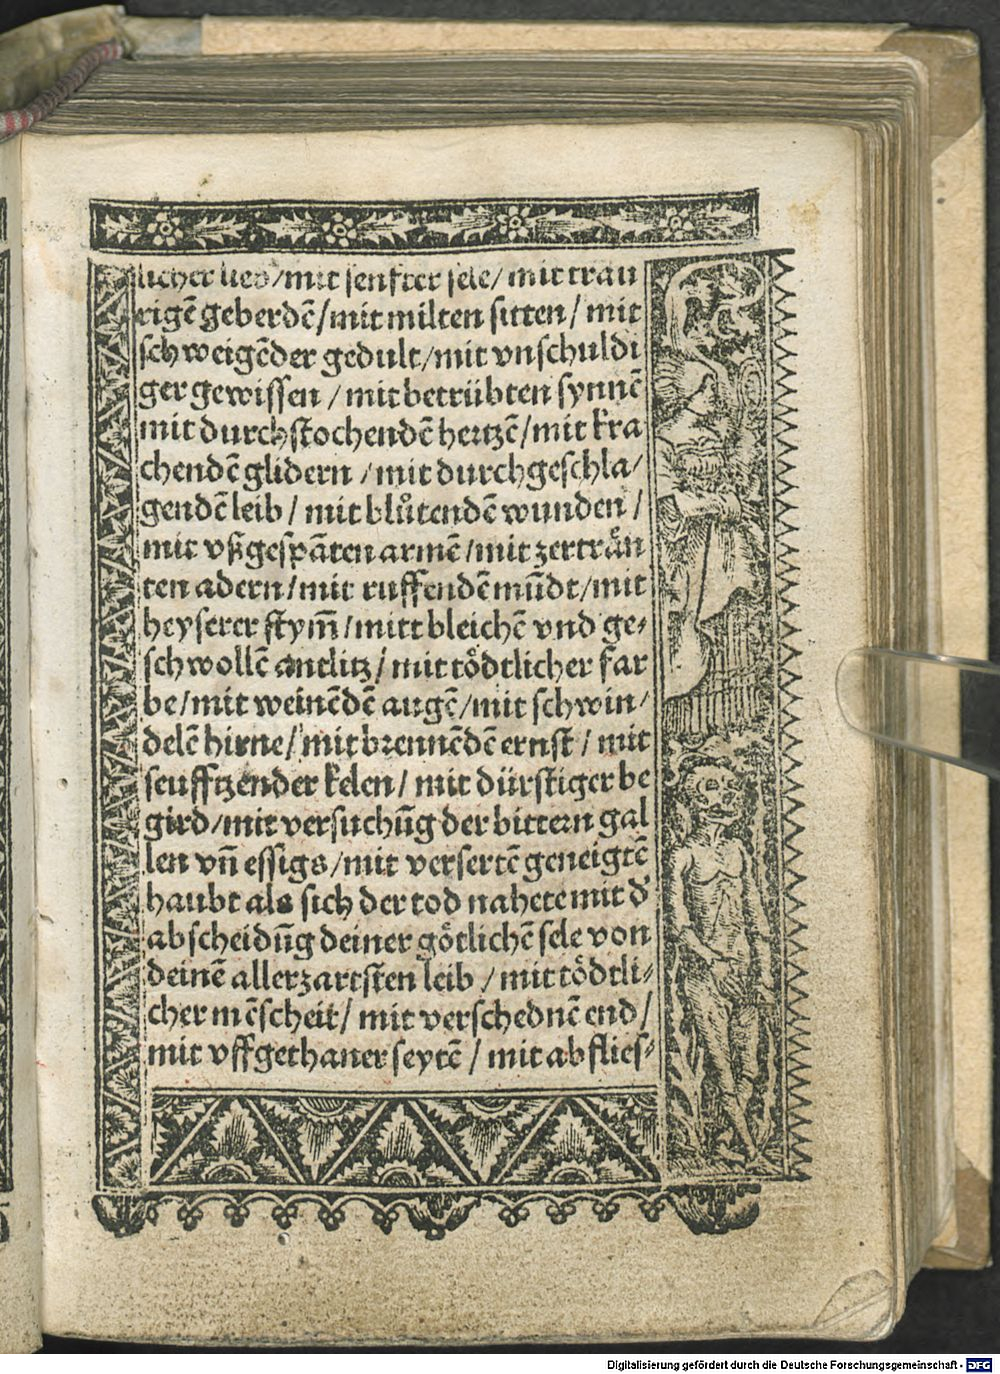 licher lieb/mit senfter sele/mit trau
rigē geberdē/mit milten sitten/mit
schweigēder gedult/mit vnschuldi
ger gewissen/mit betrübten synnē
mit durchstochendē hertzē/mit kra
chendē glidern/mit durchgeschla/
gendē leib/mit blůtendē wunden/
mit vßgespāten armē/mit zertrån
ten adern/mit ruffendē mūdt/mit
heyserer stym̄/mitt bleichē vnd ge⸗
schwollē antlitz/mit tödtlicher far
be/mit weinēdē augē/mit schwin/
delē hirne/mit brennēdē ernst/mit
seufftzender kelen/mit dürstiger be
gird/mit versuchūg der bittern gal
len vn̄ essigs/mit versertē geneigtē
haubt als sich der tod nahete mit d̓
abscheidūg deiner götlichē sele von
deinē allerzartsten leib/mit tödtli⸗
cher mēscheit/mit verschednē end/
mit vffgethaner seytē/mit abflies⸗
Digitalisierung gefördert durch die Deutsche Forschungsgemeinschaft - DFG